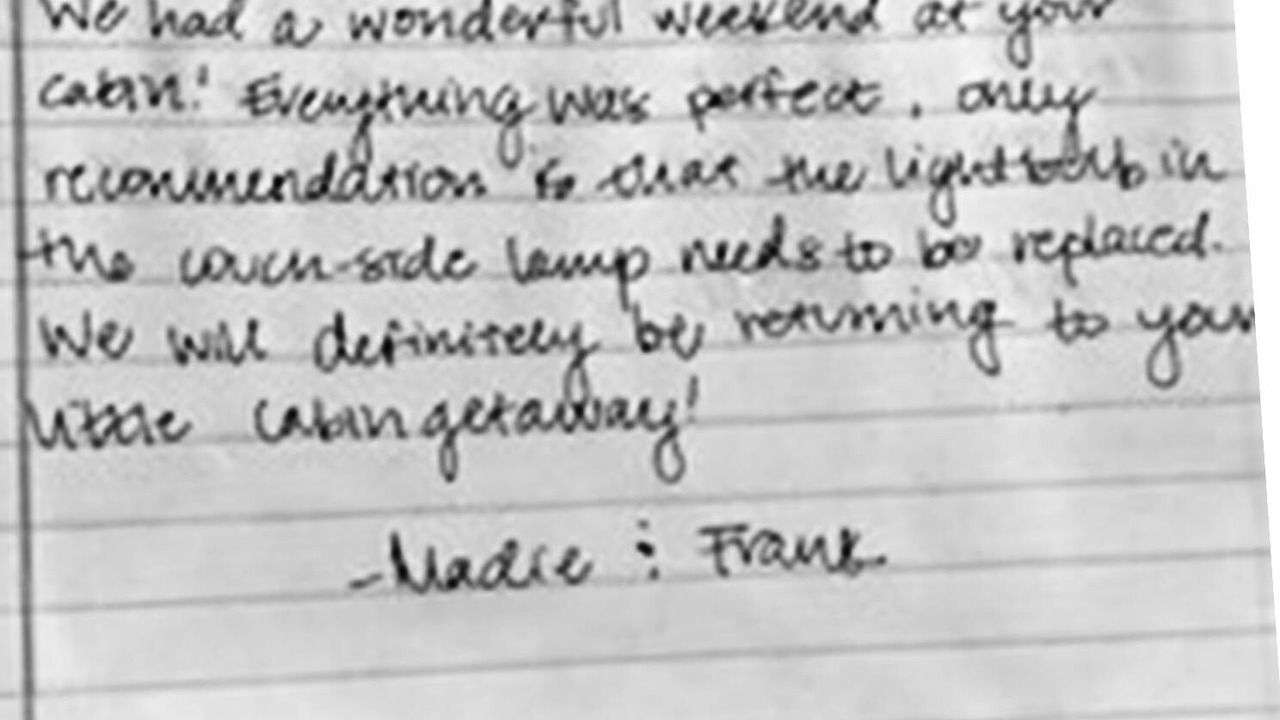 We had a wonderful weekend at your
cabin! Everything was perfect, only
recommendation is that the lightbulb in
the couch-side lamp needs to be replaced.
We will definitely be returning to your
little cabin getaway!
- Madie & Frank